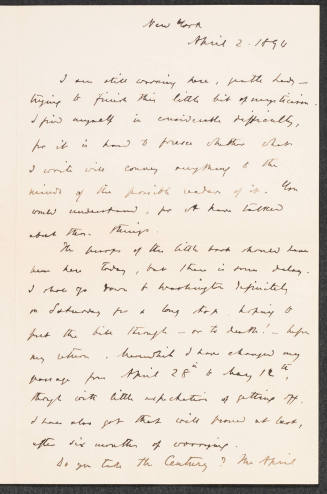 New York
April 2. 1894
I am still worrying here, gentle lady —
trying to finish this little bit of mysticism.
I find myself in considerable difficulty,
for it is hard to foresee whether what
I write will convey anything to the
minds of the possible readers of it. You
would understand, for we have talked
about these things.
The proofs of the little book should have
been here today, but there is some delay.
I shall go down to Washington definitely
on Saturday for a long stop, hoping to
put the bill through — or to death! — before
my return. Meanwhile I have changed my
passage from April 28th to May 12th,
though with little expectation of getting off.
I have also got that will proved at last,
after six months of worrying.
Do you take the Century? The April